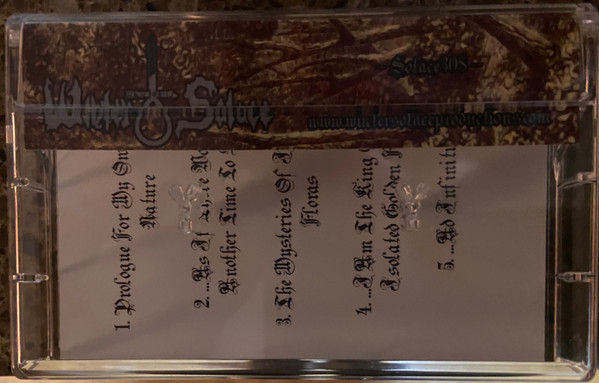 Winter Solace
Solace 108
www.wintersolaceproductions.com
1. Prologue For My Ow
Nature
2. ...As If
Another Time To
3. The Mysteries Of
Horus
4. ...I Am The King
Isolated Golden
5. ...Ad Infinitu